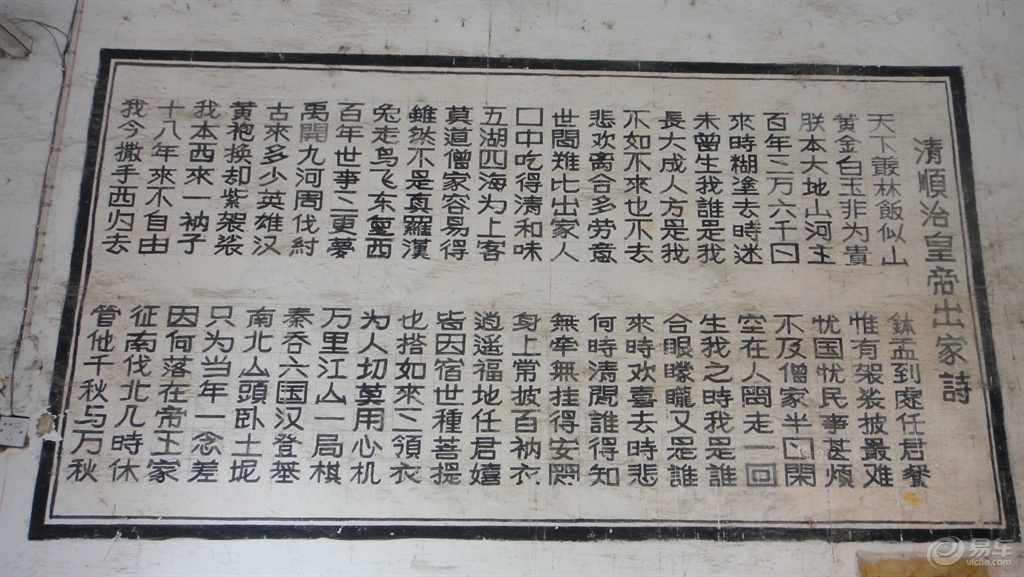 清順治皇帝出家詩
天下叢林飯似山 鉢盂到處任君餐
黃金白玉非为貴 惟有袈裟披最难
朕本大地山河主 忧国忧民事甚煩
百年三万六千日 不及僧家半日閑
來時糊塗去時迷 空在人間走一回
未曾生我誰是我 生我之時我是誰
長大成人方是我 合眼矇矓又是誰
不如不來也不去 來時欢喜去時悲
悲欢离合多劳意 何時清閒誰得知
世間难比出家人 無牵無挂得安閒
口中吃得清和味 身上常披百衲衣
五湖四海为上客 逍遥福地任君嬉
莫道僧家容易得 皆因宿世種菩提
雖然不是真羅漢 也搭如來三領衣
兔走鸟飞东复西 为人切莫用心机
百年世事三更夢 万里江山一局棋
禹開九河周伐紂 秦吞六国汉登基
古來多少英雄汉 南北山頭卧土坭
黄袍换却紫袈裟 只为当年一念差
我本西來一衲子 因何落在帝王家
十八年來不自由 征南伐北几時休
我今撒手西归去 管他千秋与万秋
易车
yiche.com